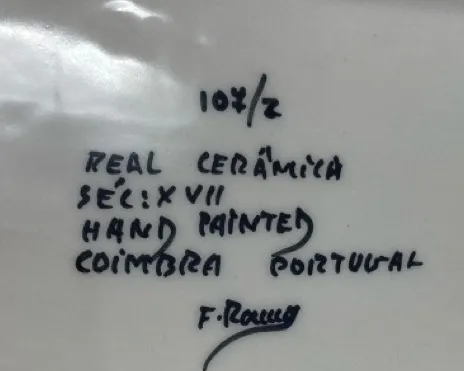 107/2
REAL CERÂMICA
SÉC: XVII
HAND PAINTED
COIMBRA PORTUGAL
F. Ramos